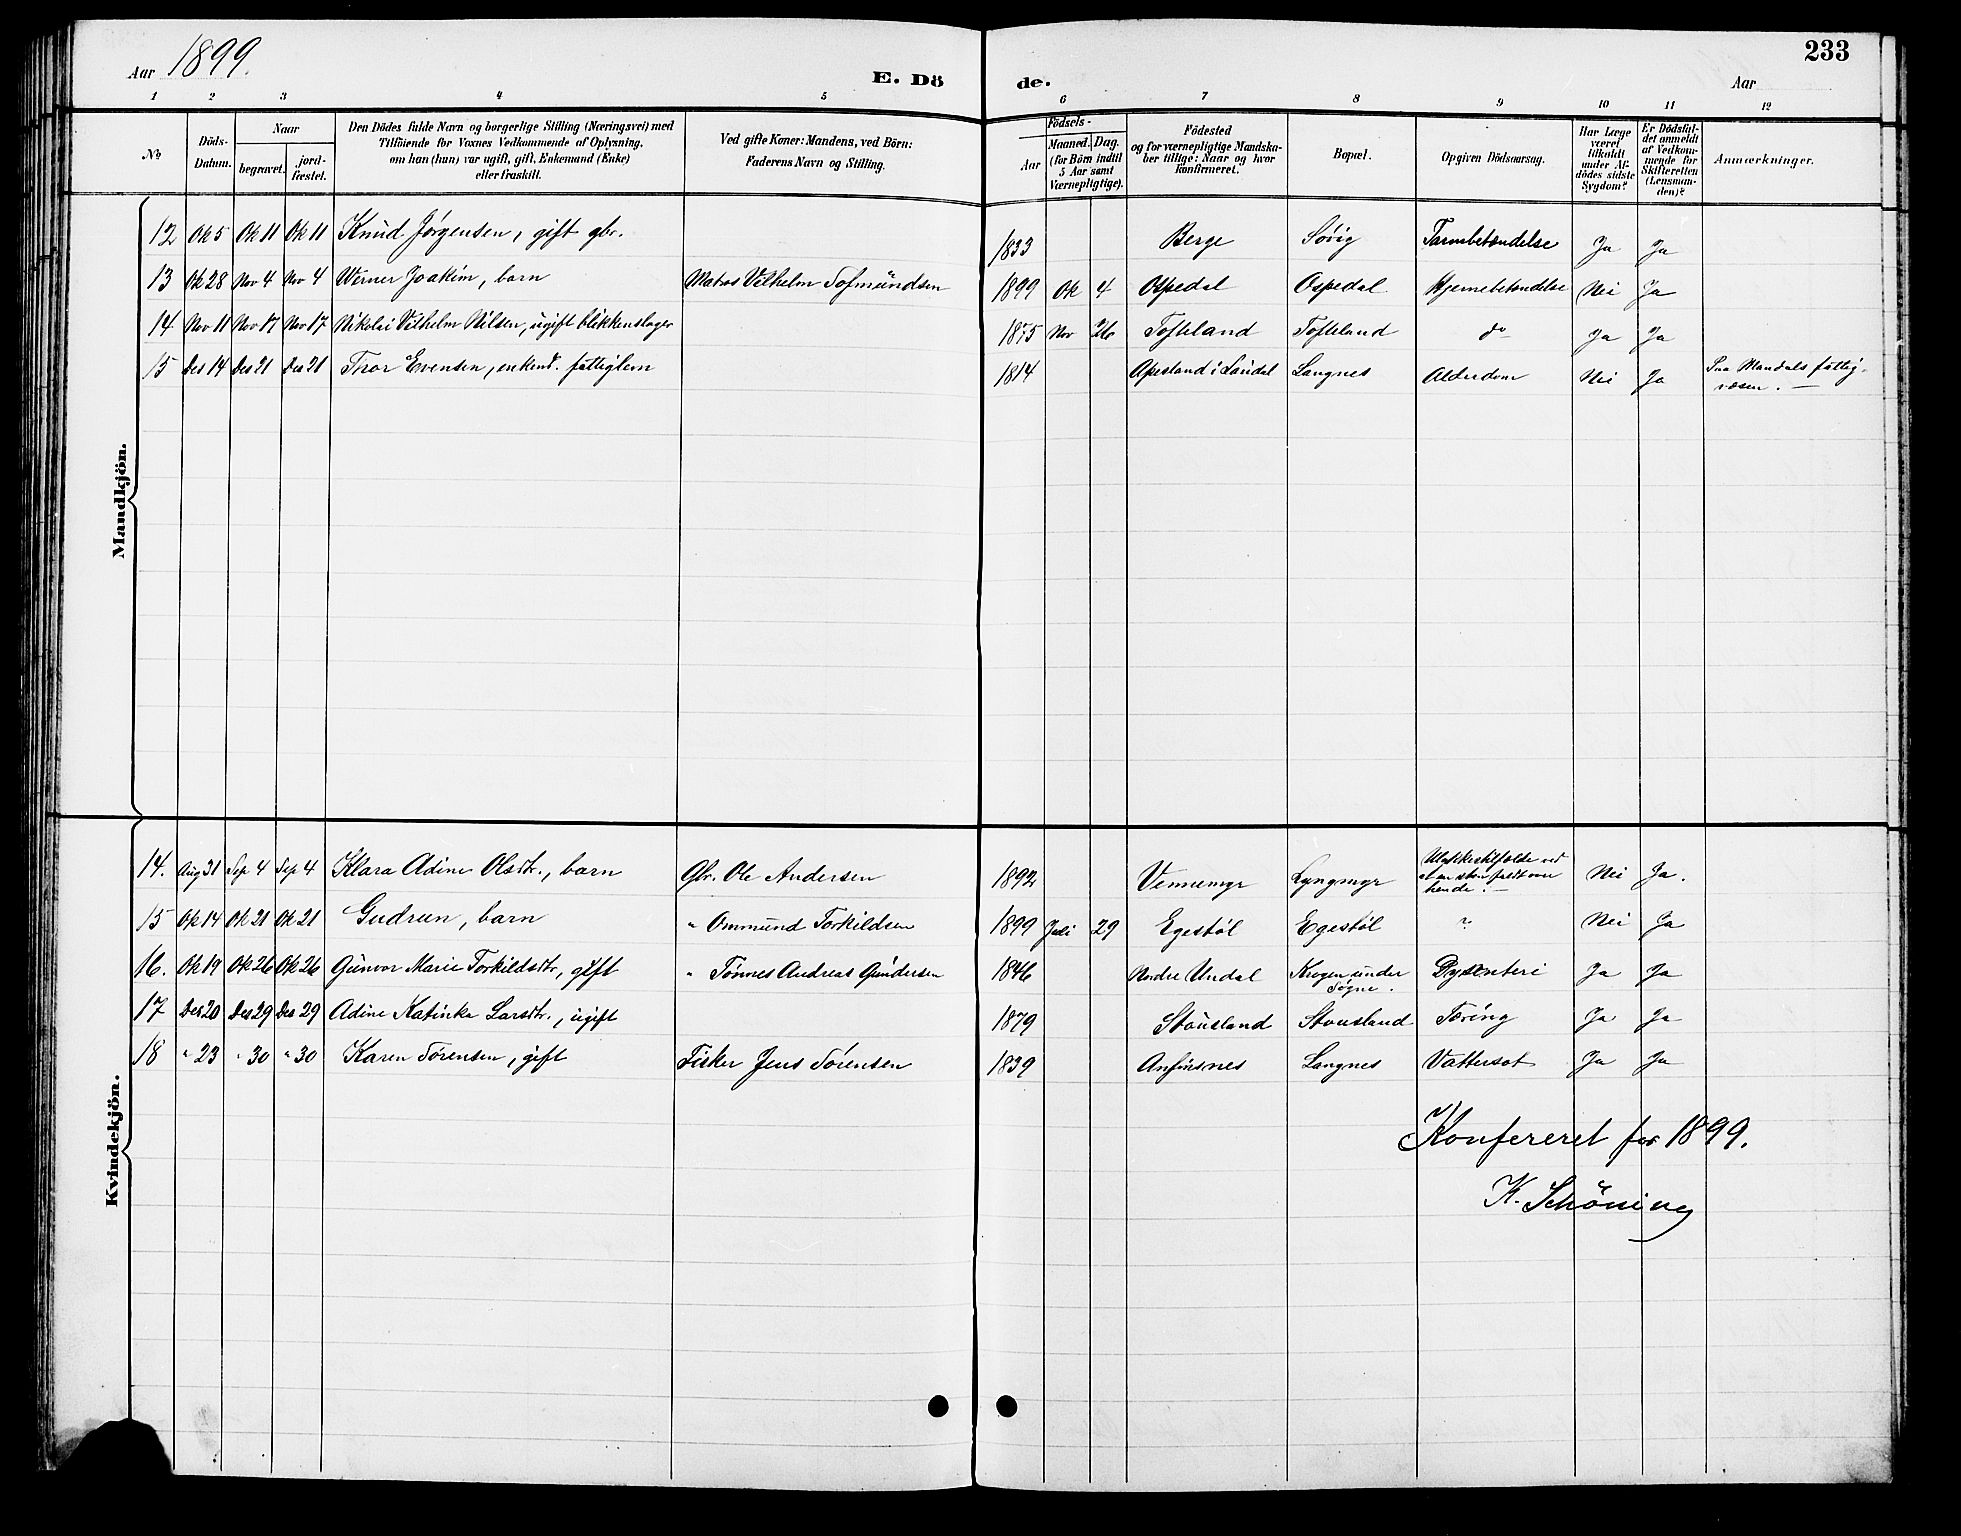 Aar 1899.
E. Dö
de.
Aar
233
1 2 3 4 5 6 7 8 9 10 11 12
No
Döds-Datum.
Naar
begravet.
jord-fæstet.
Den Dödes fulde Navn og borgerlige Stilling (Næringsvei) med
Tilföiende for Voxnes Vedkommende af Oplysning,
om han (hun) var ugift, gift, Enkemand (Enke)
eller fraskilt.
Ved gifte Koner: Mandens, ved Börn:
Faderens Navn og Stilling.
Födsels-
Aar
Maaned. Dag.
(for Börn indtil
5 Aar samt
Værnepligtige).
Födested
og for værnepligtige Mandska-
ber tillige: Naar og hvor
konfirmeret.
Bopæl.
Opgiven Dödsaarsag.
Har Læge
været
tilkaldt
under Af-
dödes sidste
Sygdom?
Er Dödsfal-
det anmeldt
af Vedkom-
mende for
Skifteretten
(Lensman-
den)?
Anmærkninger.
Mandkjön.
12 Ok 5 Ok 11 Ok 11 Knud Jørgensen, gift gbr. 1833 Berge Søvig Tarmbetændelse Ja Ja
13 Ok 28 Nov 4 Nov 4 Werner Joakim, barn Matros Vilhelm Tofmundsen 1899 Ok 4 Ospedal Ospedal Hjernebetændelse Nei Ja
14 Nov 11 Nov 17 Nov 17 Nikolai Vilhelm Nilsen, ugift blikkenslager 1875 Nov 26 Tofteland Tofteland do Ja Ja
15 Des 14 Des 21 Des 21 Thor Evensen, enkem. fattiglem 1814 Apesland i Laudal Langnes Alderdom Nei Ja Paa Mandals fattig-
væsen. —
Kvindekjön.
14. Aug 31 Sep 4 Sep 4 Klara Adine Olsdtr., barn Gbr. Ole Andersen 1892 Vennemyr Lyngmyr Ulykkestilfælde ved
at en sten faldt over
hende. — Nei Ja.
15 Ok 14 Ok 21 Ok 21 Gudrun, barn " Ommund Torkildsen 1899 Juli 29 Egestøl Egestøl ? Nei Ja
16. Ok 19 Ok 26 Ok 26 Gunvor Marie Torkildsdtr, gift " Tønnes Andreas Gundersen 1846 Nordre Undal Krogen under
Søgne. Dysenteri Ja Ja
17 Des 20 Des 29 Des 29 Adine Katinka Larsdtr., ugift 1879 Stousland Stousland Tæring Ja Ja
18 " 23 " 30 " 30 Karen Sørensen, gift Fisker Jens Sørensen 1839 Anfinsnes Langnes Vattersot Ja Ja
Konfereret for 1899.
K. Schöning